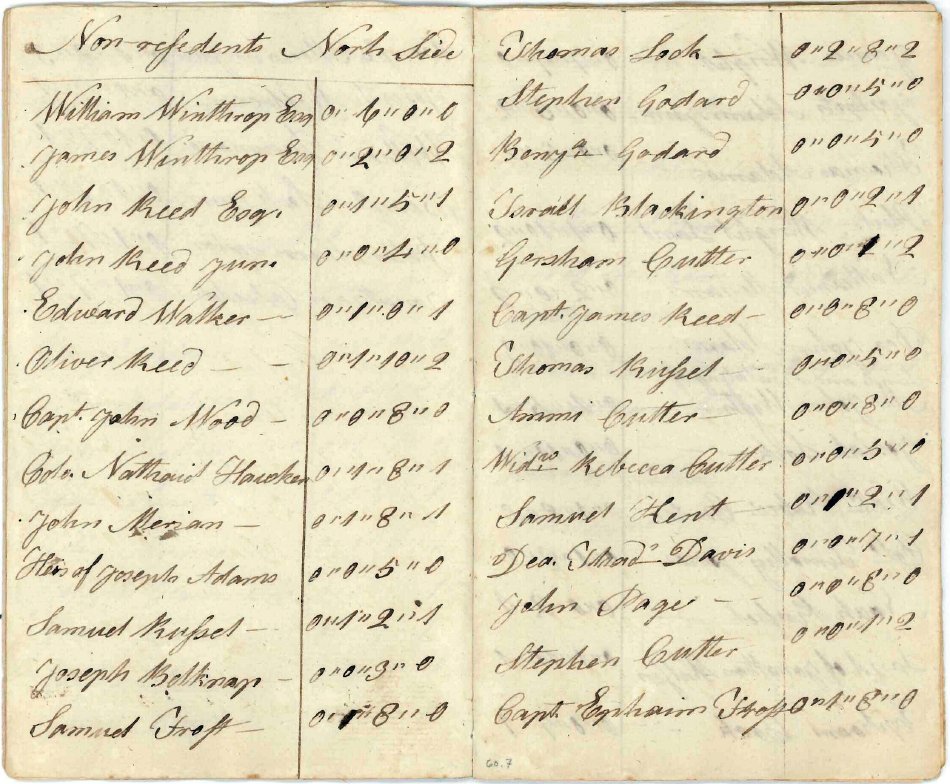 Non-resedents North Side
William Winthrop Esq 0"6"0"0
James Winthrop Esq 0"2"0"2
John Reed Esqr. 0"1"5"1
John Reed Junr. 0"0"4"0
Edward Walker — 0"1"0"1
Oliver Reed — — 0"1"10"2
Capt. John Wood — 0"0"8"0
Colo. Nathaniel 0"1"8"1
John Merian — 0"1"8"1
Heirs of Joseph Adams 0"0"5"0
Samuel Russel — 0"1"2"1
Joseph Belknap — 0"0"3"0
Samuel Frost — 0"1"8"0
Thomas Lock — 0"2"8"2
Stephen Godard 0"0"5"0
Benjn. Godard 0"0"5"0
Israell Blackington 0"0"2"1
Gersham Cutter 0"0"1"2
Capt. James Reed — 0"0"8"0
Thomas Russel — 0"0"5"0
Ammi Cutter — 0"0"8"0
Widow Rebecca Cutter 0"0"5"0
Samuel Hent — 0"1"2"1
Dea. Thads Davis 0"0"7"1
John Page — 0"0"8"0
Stephen Cutter 0"0"1"2
Capt. Ephaim Frost 0"1"8"0
60.7